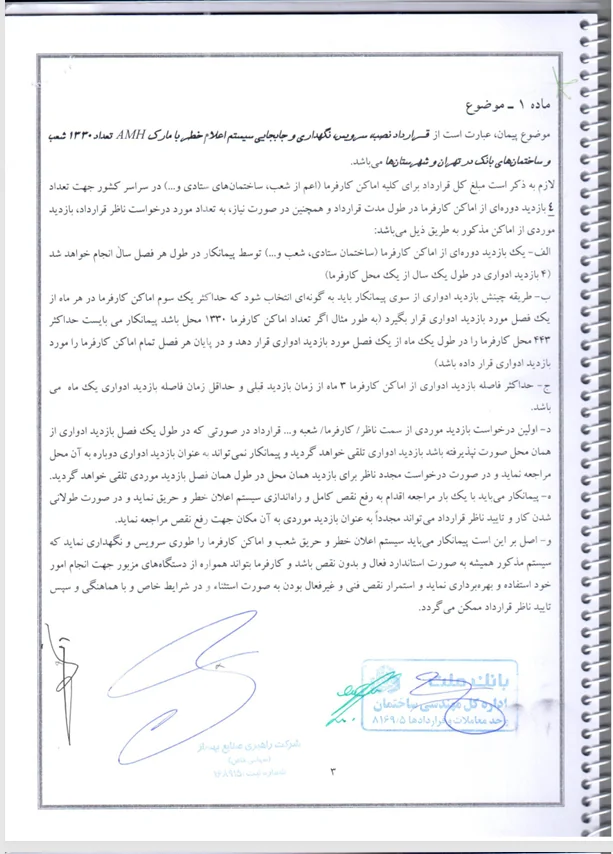 ماده ۱ ـ موضوع
موضوع پیمان، عبارت است از قرارداد نصب، سرویس، نگهداری و جابجایی سیستم اعلام خطر با مارک AMH تعداد ۱۳۳۰ شعب
و ساختمان‌های بانک در تهران و شهرستان‌ها می‌باشد.
لازم به ذکر است مبلغ کل قرارداد برای کلیه اماکن کارفرما (اعم از شعب، ساختمان‌های ستادی و...) در سراسر کشور جهت تعداد
٤ بازدید دوره‌ای از اماکن کارفرما در طول مدت قرارداد و همچنین در صورت نیاز، به تعداد مورد درخواست ناظر قرارداد، بازدید
موردی از اماکن مذکور به طریق ذیل می‌باشد:
الف- یک بازدید دوره‌ای از اماکن کارفرما (ساختمان ستادی، شعب و...) توسط پیمانکار در طول هر فصل سال انجام خواهد شد
(۴ بازدید ادواری در طول یک سال از یک محل کارفرما)
ب- طریقه چینش بازدید ادواری از سوی پیمانکار باید به گونه‌ای انتخاب شود که حداکثر یک سوم اماکن کارفرما در هر ماه از
یک فصل مورد بازدید ادواری قرار بگیرد (به طور مثال اگر تعداد اماکن کارفرما ۱۳۳۰ محل باشد پیمانکار می بایست حداکثر
۴۴۳ محل کارفرما را در طول یک ماه از یک فصل مورد بازدید ادواری قرار دهد و در پایان هر فصل تمام اماکن کارفرما را مورد
بازدید ادواری قرار داده باشد)
ج- حداکثر فاصله بازدید ادواری از اماکن کارفرما ۳ ماه از زمان بازدید قبلی و حداقل زمان فاصله بازدید ادواری یک ماه می
باشد.
د- اولین درخواست بازدید موردی از سمت ناظر/ کارفرما/ شعبه و... قرارداد در صورتی که در طول یک فصل بازدید ادواری از
همان محل صورت نپذیرفته باشد بازدید ادواری تلقی خواهد گردید و پیمانکار نمی‌تواند به عنوان بازدید ادواری دوباره به آن محل
مراجعه نماید و در صورت درخواست مجدد ناظر برای بازدید همان محل در طول همان فصل بازدید موردی تلقی خواهد گردید.
ه- پیمانکار می‌باید با یک بار مراجعه اقدام به رفع نقص کامل و راه‌اندازی سیستم اعلان خطر و حریق نماید و در صورت طولانی
شدن کار و تایید ناظر قرارداد می‌تواند مجدداً به عنوان بازدید موردی به آن مکان جهت رفع نقص مراجعه نماید.
و- اصل بر این است پیمانکار می‌باید سیستم اعلان خطر و حریق شعب و اماکن کارفرما را طوری سرویس و نگهداری نماید که
سیستم مذکور همیشه به صورت استاندارد فعال و بدون نقص باشد و کارفرما بتواند همواره از دستگاه‌های مزبور جهت انجام امور
خود استفاده و بهره‌برداری نماید و استمرار نقص فنی و غیرفعال بودن به صورت استثناء و در شرایط خاص و با هماهنگی و سپس
تایید ناظر قرارداد ممکن می‌گردد.
بانک ملت
اداره کل مهندسی ساختمان
واحد معاملات و قراردادها ۸۱۶۹۰۵
شرکت راهبری صنایع بهساز
(سهامی خاص)
۳